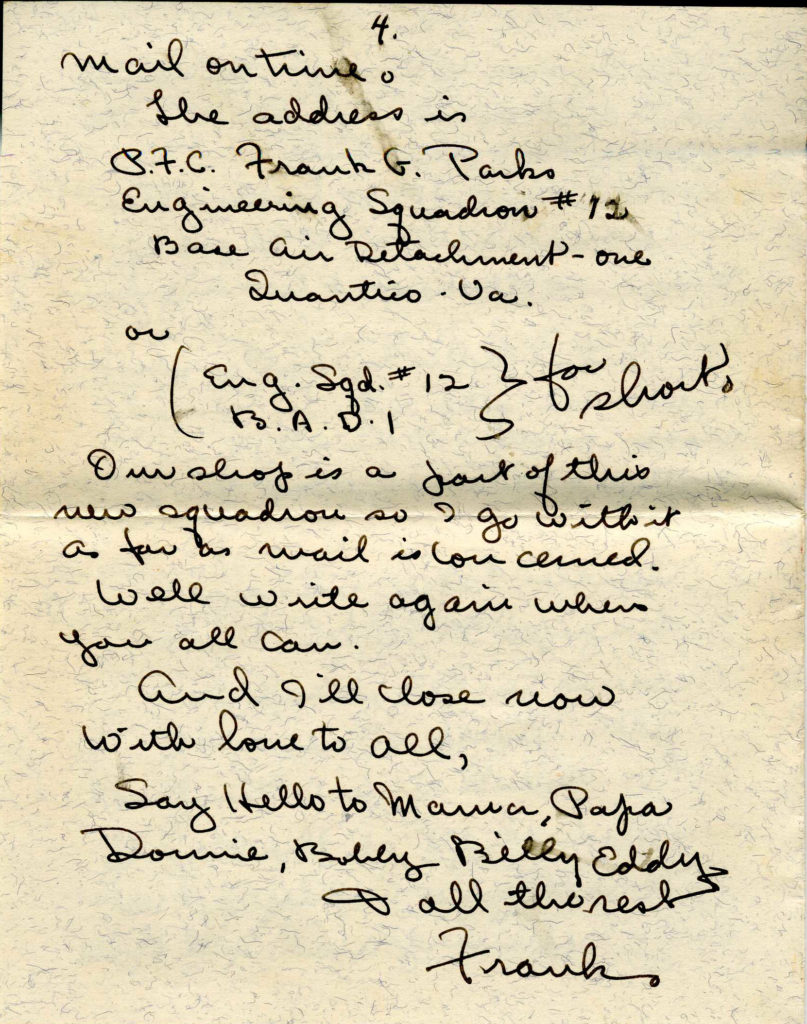 4.
mail on time.
The address is
P.F.C. Frank G. Parks
Engineering Squadron #12
Base Air Detachment - one
Quantico - Va.
or
( Eng. Sqd. #12 } for short.
B.A.D. 1
Our shop is a part of this
new squadron so I go with it
as far as mail is concerned.
Well write again when
you all can.
And I'll close now
With love to all,
Say Hello to Mama, Papa
Donnie, Bobby Billy Eddy
& all the rest
Frank.